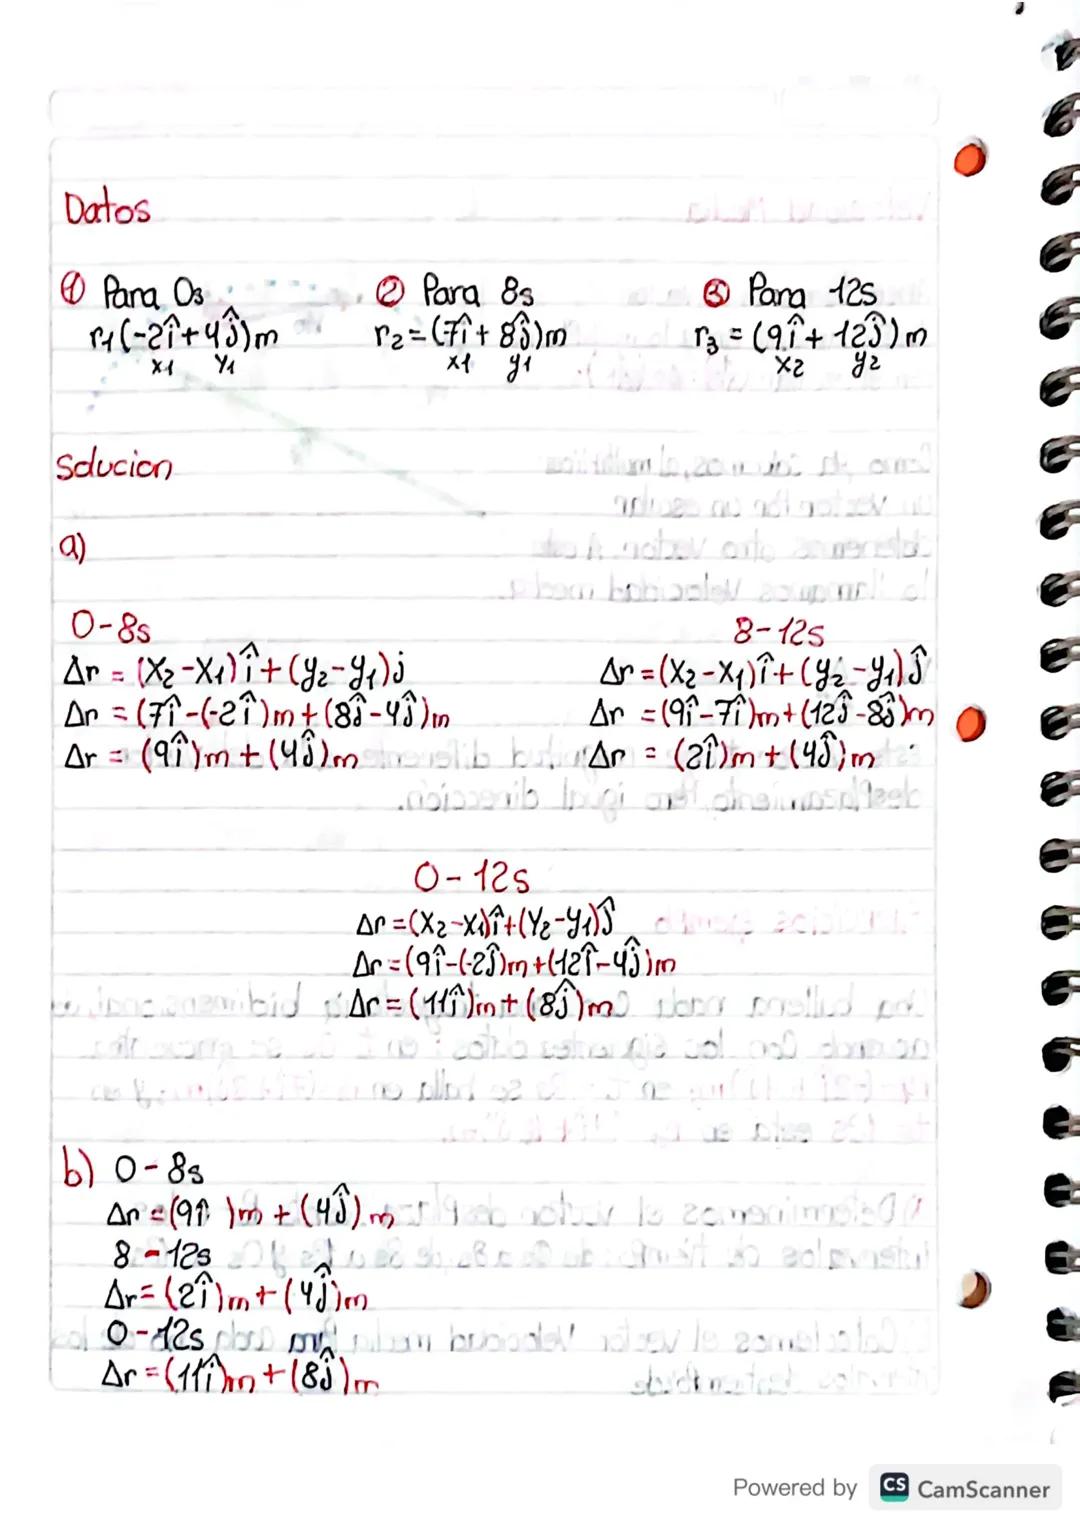 Datos
① Para 0s
r1(-2î+4ĵ)m
x1 y1
② Para 8s
r2=(7î+8ĵ)m
x1 y1
③ Para 12s
r3 = (9î+12ĵ)m
x2 y2
Solucion
a)
0-8s
Δr = (x2-x1)î+(y2-y1)j
Δr = (7î-(-2î)m+(8ĵ-4ĵ)m
Δr = (9î)m+(4ĵ)m
8-12s
Δr=(x2-x1)î+(y2-y1)ĵ
Δr =(9î-7î)m+(12ĵ-8ĵ)m
Δr = (2î)m+(4ĵ)m
0-12s
Δr=(x2-x1)î+(y2-y1)ĵ
Δr=(9î-(-2ĵ)m+(12î-4ĵ)m
Δr=(11î)m+(8ĵ)m
b) 0-8s
Δr=(9î )m+(4ĵ)m
8-12s
Δr=(2î)m+(4ĵ)m
0-12s
Δr=(11î)m+(8ĵ)m
Powered by CS CamScanner